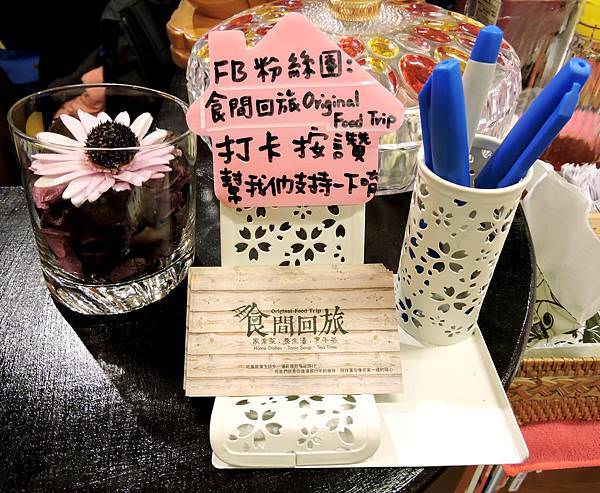 FB粉絲團:
食間回旅 Original
Food Trip
打卡按讚
幫我們支持一下唷
Original Food Trip
食間回旅
家常菜．養生湯．下午茶
Home Dishes · Tonic Soup · Tea Time